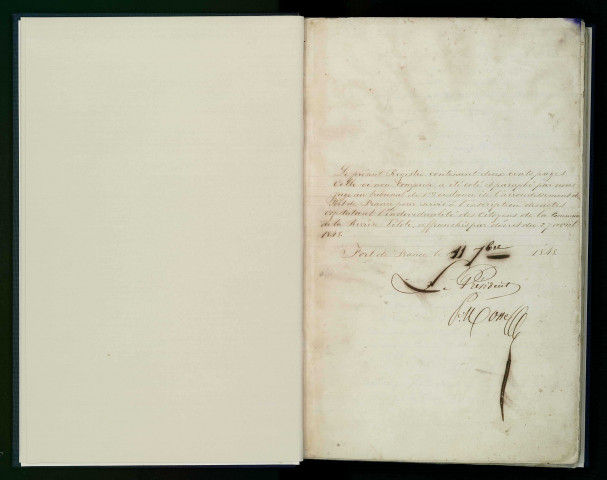 Le présent Registre contenant deux cents pages
Celle ci non comprise, a été coté et paraphé par nous
juge au tribunal de 1re Instance de l'arrondissement de
Fort de France pour servir à l'inscription des actes
constatant l'individualité des Citoyens de la Commune
de la Rivière Pilote, affranchis par décret du 27 avril
1848.
Fort de France le 11 7bre 1848
Le Président